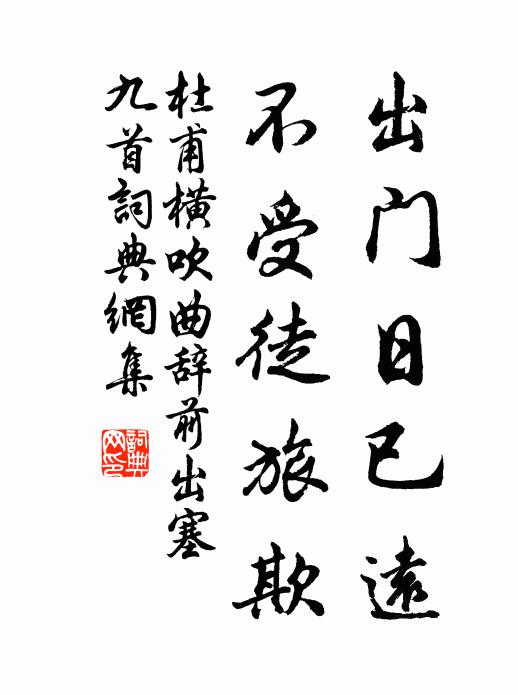 出门日已遠
不受徒旅欺
杜甫橫吹曲辞前出塞
九首詞典網集
詞典网印